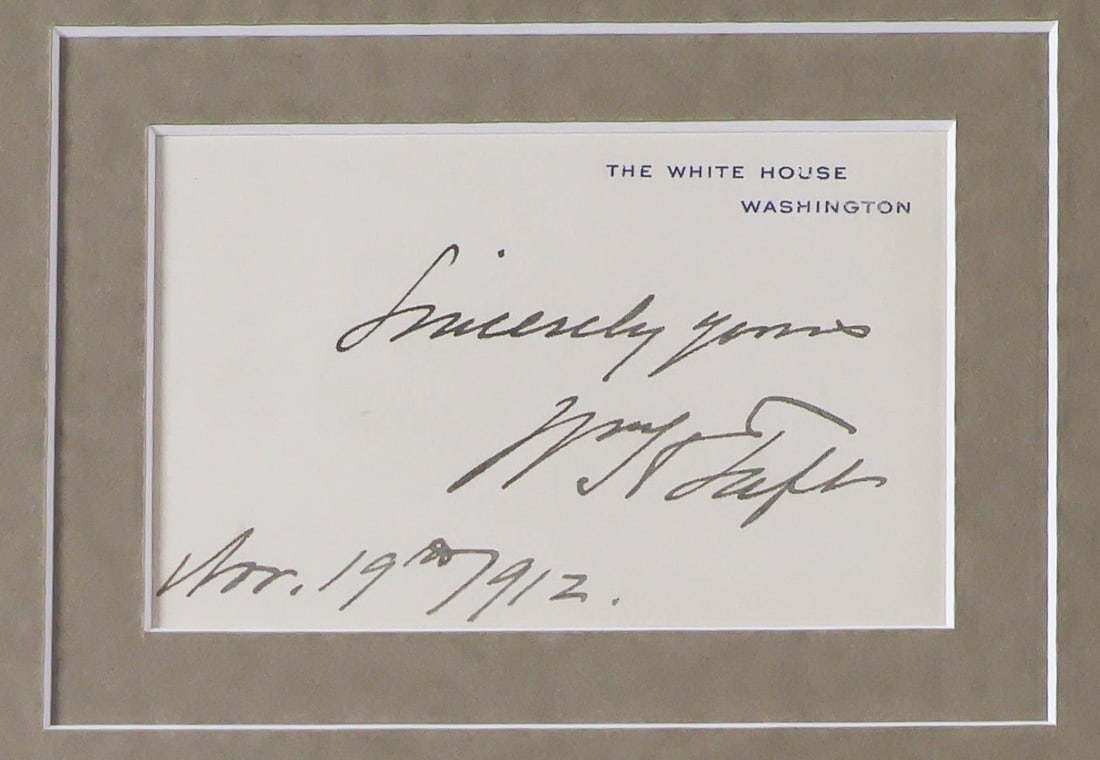 THE WHITE HOUSE
WASHINGTON
Sincerely yours
Wm H Taft
Nov. 19th 1912.